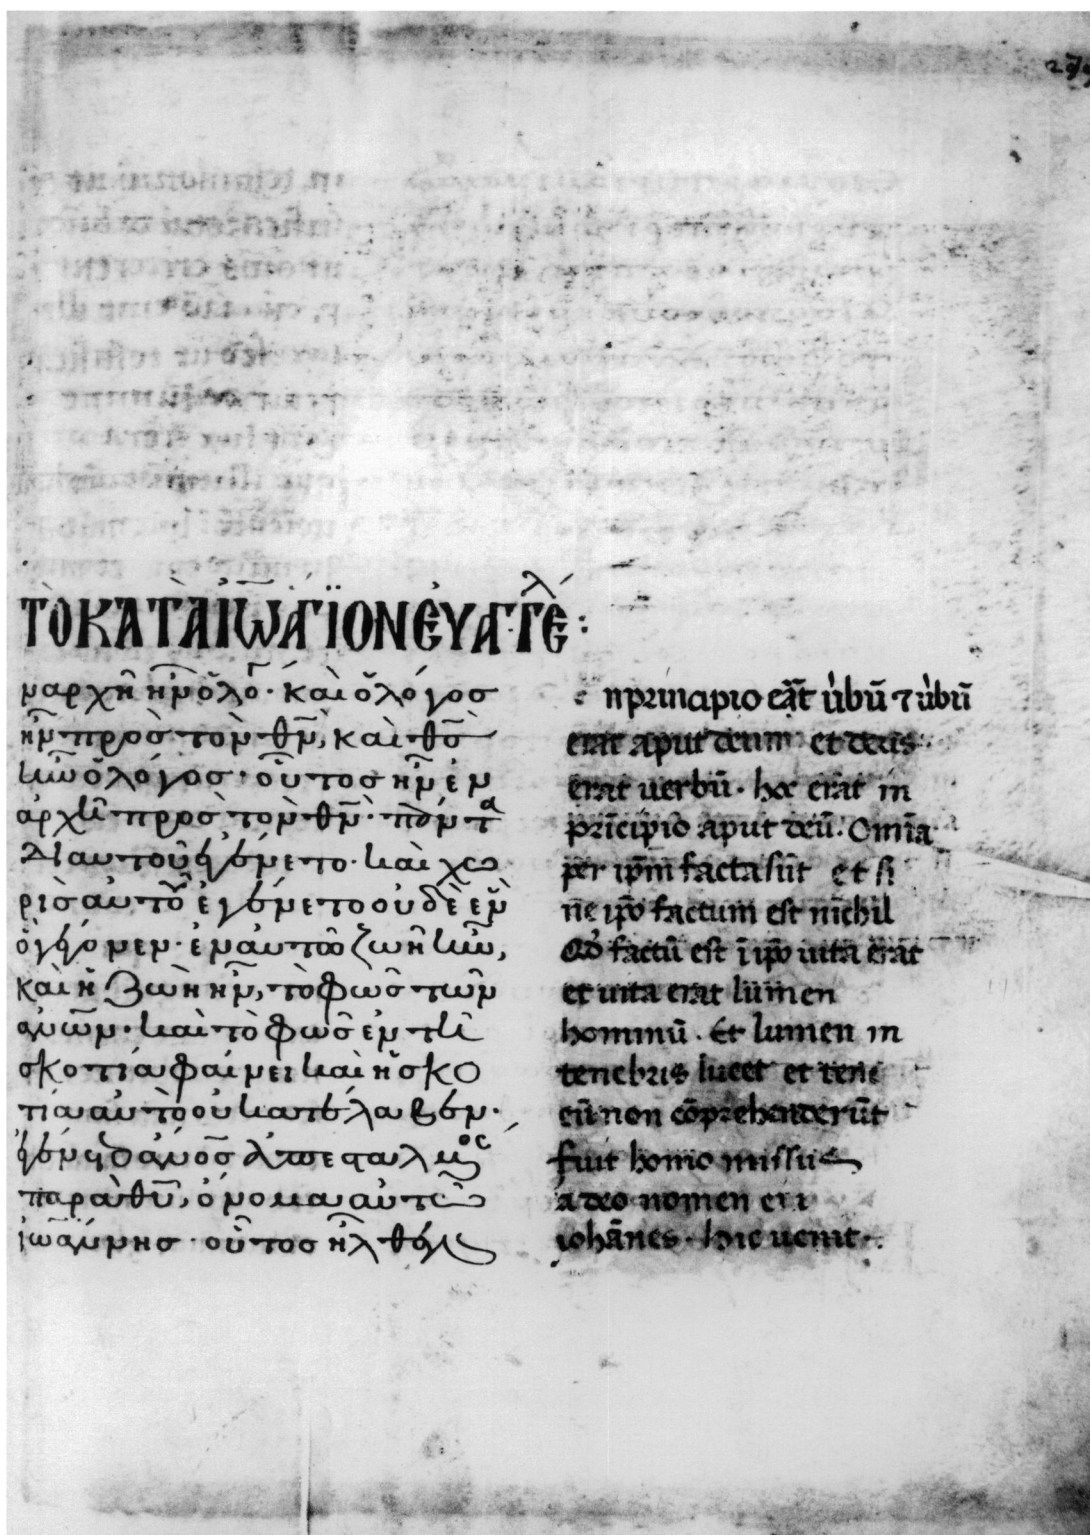 ΤῸ ΚΑΤᾺ ἸΩ ἍΓΙΟΝ ΕΥΑΓΓΕ^λ:
ναρχῆ ἦν ὁ λό^γ· καὶ ὁ λόγοσ
ἦν προσ τὸν θν̅, καὶ θσ̅
ἦν ὁ λόγοσ· οὗτοσ ἦν ἐν
ἀρχῆ προσ τὸν θν̅· πάντα
δι αυτοῦ ἐγένετο· καὶ χω
ρὶσ αυτοῦ ἐγένετο ουδὲ ἓν
ὃ γέγονεν· ἐν αυτῶ ζωὴ ἦν,
καὶ ἡ ζωὴ ἦν, τὸ φῶσ τῶν
ανων· καὶ τὸ φῶσ ἐν τῆ
σκοτία φαίνει καὶ ἡ σκο
τία αυτὸ ου κατέλαβεν·
ἐγένετο ανοσ ἀπεσταλμένοσ
παρὰ θυ̅, ὄνομα αυτῶ
ἰωάννησ· οὗτοσ ἦλθεν εἰσ
n principio erat ùbū ⁊ ùbū
erat aput deum et deus
erat uerbū· hoc erat in
prīcipio aput deū. Omīa
per ip̄m facta sūt et si
ne ip̄o factum est nichil
Qd̓ factū est ī ip̄o uita erat
et uita erat lumen
hominū. Et lumen in
tenebris lucet et tene
eū non cōprehenderūt
fuit homo missus
a deo nomen erat
iohānes· hic uenit·